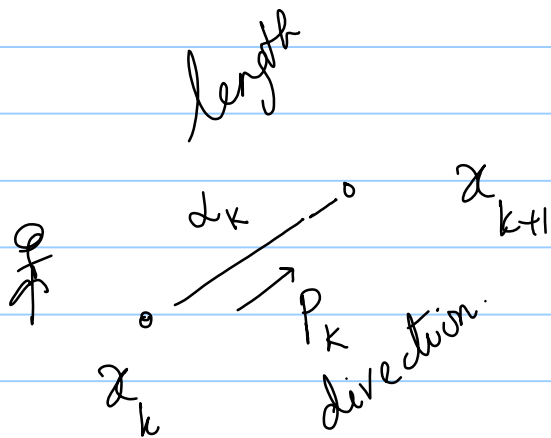 length
α_k
x_{k+1}
p_k
direction.
x_k